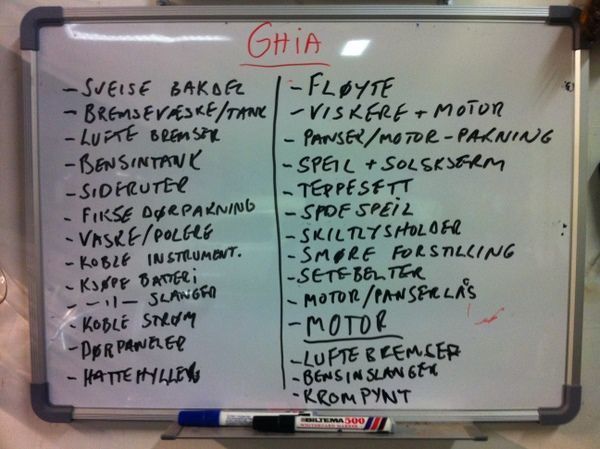 GHIA
- SVEISE BAKDEL
- BREMSEVÆSKE/TANK
- LUFTE BREMSER
- BENSINTANK
- SIDERUTER
- FIKSE DØRPAKNING
- VASKE/POLERE
- KOBLE INSTRUMENT.
- KJØPE BATTERI
- -"- SLANGER
- KOBLE STRØM
- DØRPANELER
- HATTEHYLLER
- FLØYTE
- VISKERE + MOTOR
- PANSER/MOTOR-PAKNING
- SPEIL + SOLSKJERM
- TEPPESETT
- SPDE SPEIL
- SKILTLYSHOLDER
- SMØRE FORSTILLING
- SETEBELTER
- MOTOR/PANSERLÅS
- MOTOR
- LUFTE BREMSER
- BENSINSLANGER
- KROMPYNT
BILTEMA 500
WHITEBOARD MARKER